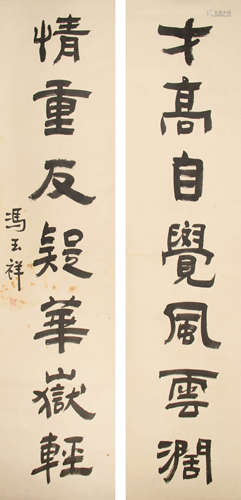 才高自覺風雲濶
情重反疑華嶽輕
馮玉祥